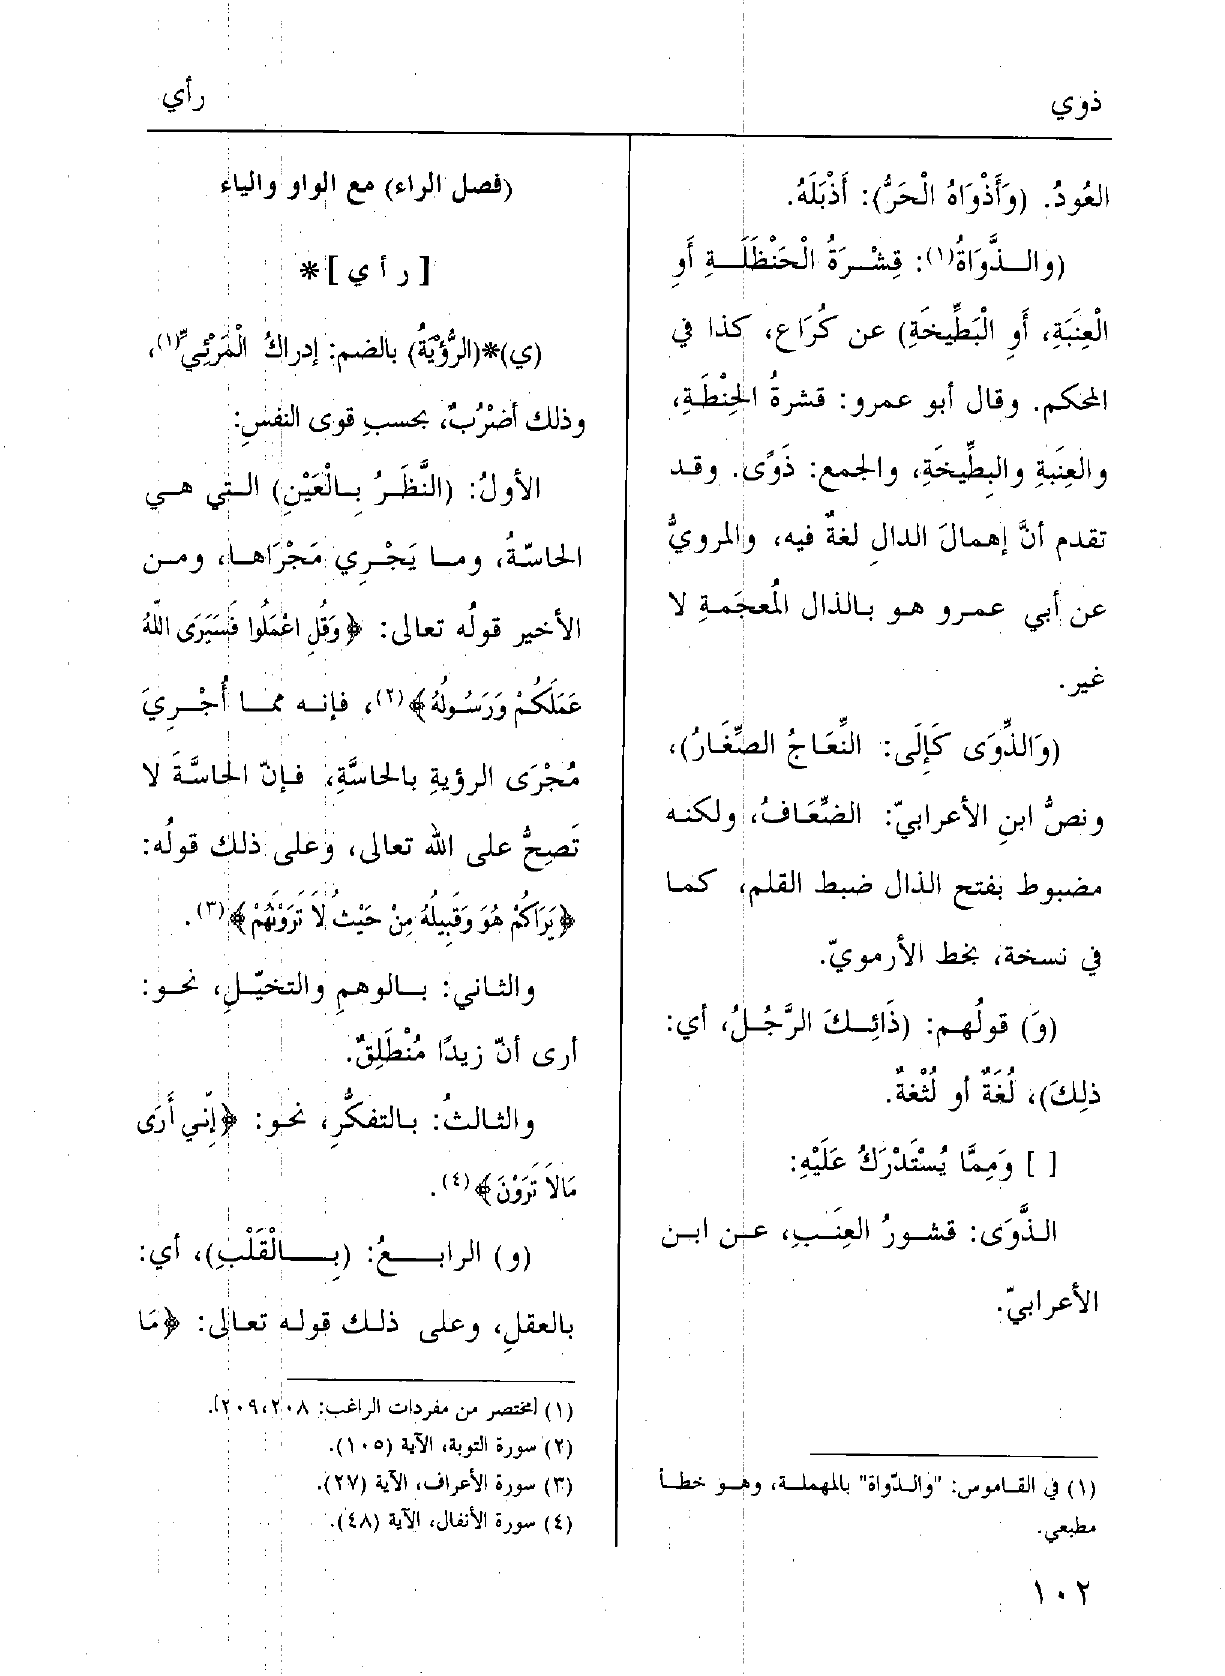 ذوي
رأي
العُودُ. (وَأَذْوَاهُ الْحَرُّ): أَذْبَلَهُ.
(والـذَّوَاةُ(١): قِشْـرَةُ الْحَنْظَلَـةِ أَوِ
الْعِنَبَةِ، أَوِ الْبَطِّيخَةِ) عن كُرَاع، كذا في
المحكم. وقال أبو عمرو: قشرةُ الحِنْطَةِ،
والعِنَبَةِ والبِطِّيخَةِ، والجمع: ذَوًى. وقـد
تقدم أنَّ إهمالَ الدالِ لغةٌ فيه، والمرويُّ
عن أبي عمرو هو بالذال المُعجَمةِ لا
غير.
(وَالذِّوَى كَإِلَى: النِّعَاجُ الصِّغَارُ)،
ونصُّ ابنِ الأعرابيّ: الضِّعَافُ، ولكنه
مضبوط بفتح الذال ضبط القلم، كما
في نسخة، بخط الأرمويّ.
(وَ) قولُهم: (ذَائِـكَ الرَّجُـلُ، أي:
ذلِكَ)، لُغَةٌ أو لُثْغةٌ.
[ ] وَمِمَّا يُسْتَدْرَكُ عَلَيْهِ:
الذَّوَى: قشورُ العِنَـبِ، عـن ابـن
الأعرابيّ.
(١) في القاموس: "والـدّواة" بالمهملـة، وهـو خطـأ
مطبعي.
١٠٢
(فصل الراء) مع الواو والياء
[ ر أ ي ]*
(ي)*(الرُّؤْيَةُ) بالضم: إدراكُ الْمَرْئِيِّ(١)،
وذلك أضرُبٌ، بحسبِ قوى النفسِ:
الأولُ: (النَّظَرُ بِـالْعَيْنِ) الـتي هـي
الحاسّةُ، ومـا يَجْرِي مَجْرَاهـا، ومـن
الأخير قولُه تعالى: ﴿وَقُلِ اعْمَلُوا فَسَيَرَى اللهُ
عَمَلَكُمْ وَرَسُولُهُ﴾(٢)، فإنـه ممـا أُجْـرِيَ
مُجْرَى الرؤيةِ بالحاسَّةِ، فإنّ الحاسَّةَ لا
تَصِحُّ على الله تعالى، وعلى ذلك قولُه:
﴿يَرَاكُمْ هُوَ وَقَبِيلُهُ مِنْ حَيْثُ لاَ تَرَوْنَهُمْ﴾(٣).
والثاني: بـالوهمِ والتخيّـلِ، نحـو:
أرى أنّ زيدًا مُنْطَلِقٌ.
والثالثُ: بـالتفكُّرِ، نحـو: ﴿إِنّي أَرَى
مَالاَ تَرَوْنَ﴾(٤).
(و) الرابـــعُ: (بِـــالْقَلْبِ)، أي:
بالعقلِ، وعلى ذلـك قولـه تعـالى: ﴿مَا
(١) [مختصر من مفردات الراغب: ٢٠٨،٢٠٩].
(٢) سورة التوبة، الآية (١٠٥).
(٣) سورة الأعراف، الآية (٢٧).
(٤) سورة الأنفال، الآية (٤٨).